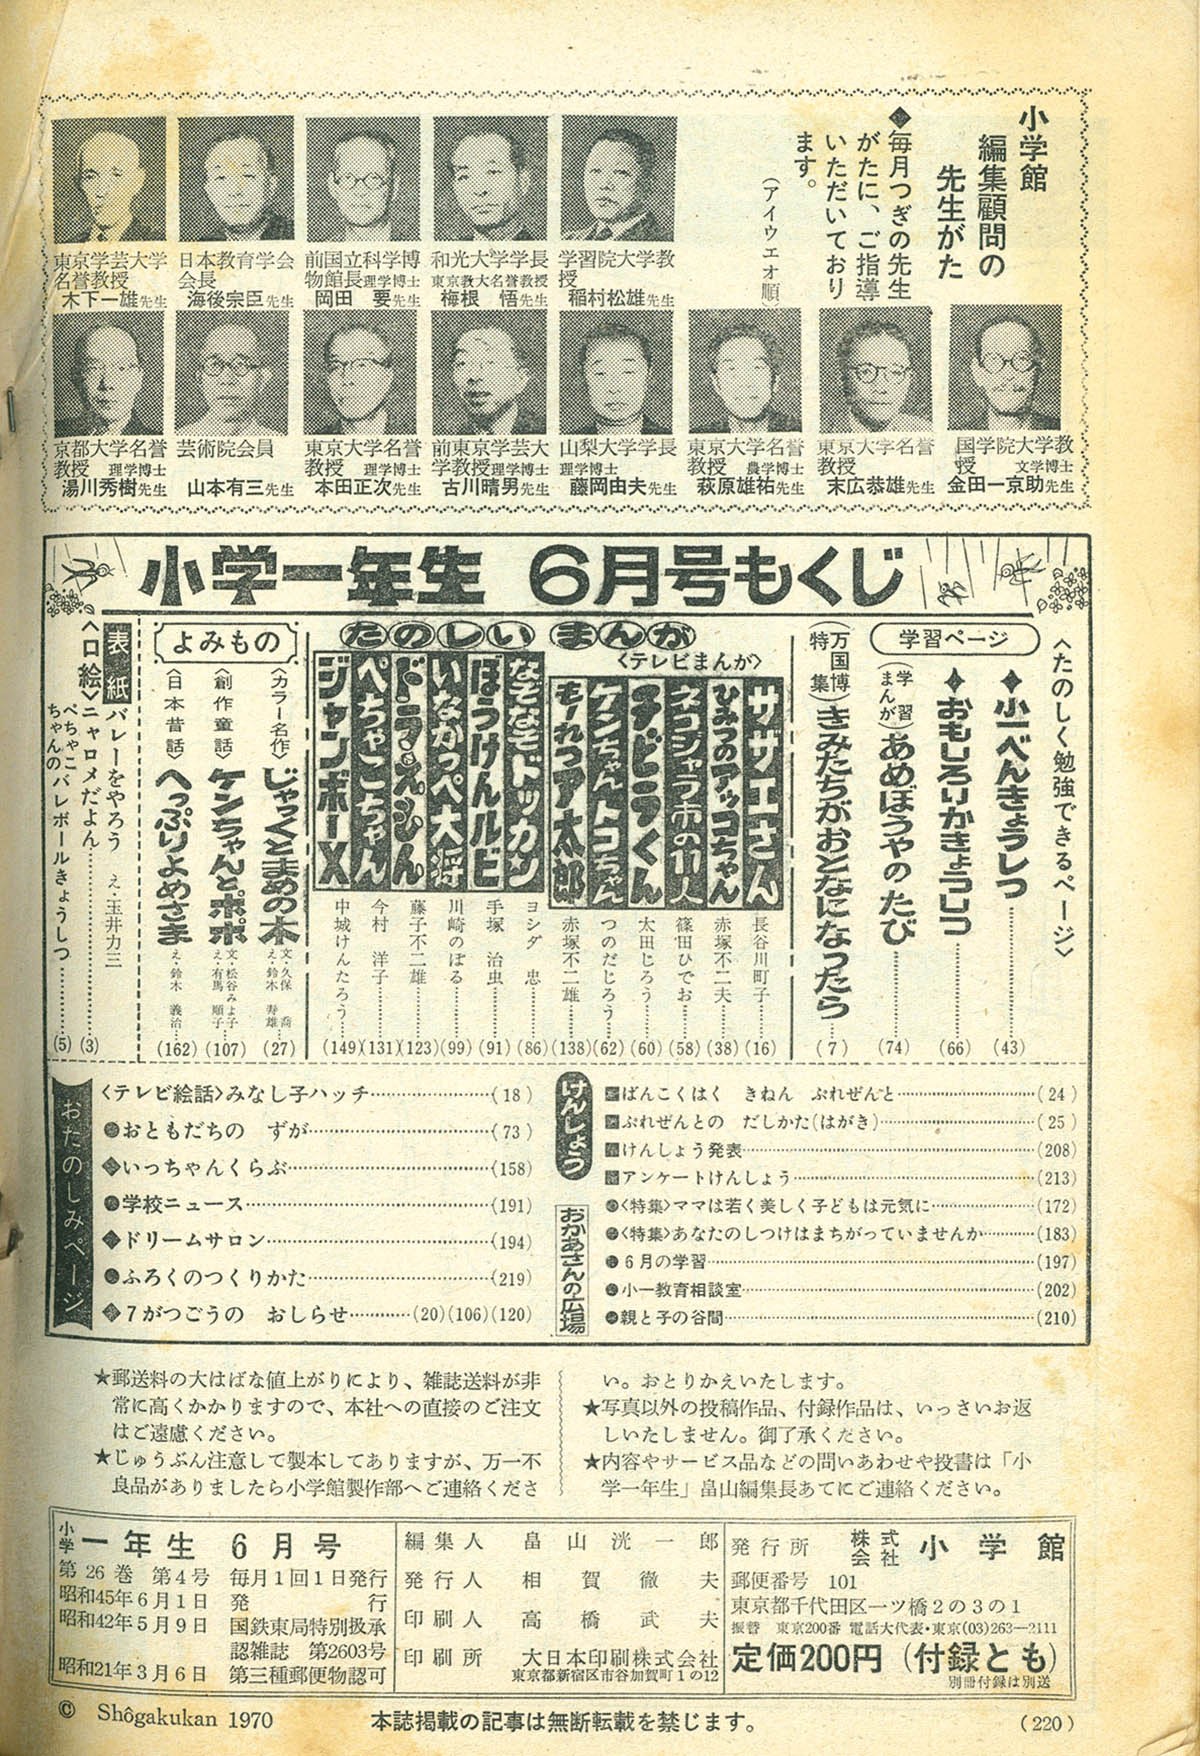 小学館
編集顧問の
先生がた
◆毎月つぎの先生
がたに、ご指導
いただいており
ます。
(アイウエオ順)
学習院大学教
授
稲村松雄先生
和光大学学長
東京教大名誉教授
梅根 悟先生
前国立科学博
物館長 理学博士
岡田 要先生
日本教育学会
会長
海後宗臣先生
東京学芸大学
名誉教授
木下一雄先生
国学院大学教
授 文学博士
金田一京助先生
東京大学名誉
教授
末広恭雄先生
東京大学名誉
教授 農学博士
萩原雄祐先生
山梨大学学長
理学博士
藤岡由夫先生
前東京学芸大
学教授 理学博士
古川晴男先生
東京大学名誉
教授 理学博士
本田正次先生
芸術院会員
山本有三先生
京都大学名誉
教授 理学博士
湯川秀樹先生
小学一年生 6月号もくじ
〈たのしく勉強できるページ〉
学習ページ
◆小一べんきょうしつ……(43)
◆おもしろりかきょうしつ……(66)
(学習まんが)あめぼうやのたび……(74)
(万国博特集)きみたちがおとなになったら……(7)
たのしいまんが
〈テレビまんが〉
サザエさん 長谷川町子……(16)
ひみつのアッコちゃん 赤塚不二夫……(38)
ネコジャラ市の11人 篠田ひでお……(58)
チビラくん 太田じろう……(60)
ケンちゃんトコちゃん つのだじろう……(62)
もーれつア太郎 赤塚不二雄……(138)
なぞなぞドッカン ヨシダ 忠……(86)
ぼうけんルビ 手塚 治虫……(91)
いなかっぺ大将 川崎のぼる……(99)
ドラえもん 藤子不二雄……(123)
ぺちゃこちゃん 今村 洋子……(131)
ジャンボーX 中城けんたろう……(149)
よみもの
〈カラー名作〉じゃっくとまめの木 文・久保 喬 え・鈴木 寿雄……(27)
〈創作童話〉ケンちゃんとポポ 文・松谷みよ子 え・有馬 順子……(107)
〈日本昔話〉へっぷりよめさま え・鈴木 義治……(162)
表紙 バレーをやろう え・玉井力三
〈口絵〉ニャロメだよん……(3)
ぺちゃこちゃんのバレボールきょうしつ……(5)
おたのしみページ
〈テレビ絵話〉みなし子ハッチ……(18)
●おともだちの ずが……(73)
◆いっちゃんくらぶ……(158)
●学校ニュース……(191)
◆ドリームサロン……(194)
●ふろくのつくりかた……(219)
◆7がつごうの おしらせ……(20)(106)(120)
けんしょう
ばんこくはく きねん ぷれぜんと……(24)
ぷれぜんとの だしかた(はがき)……(25)
けんしょう発表……(208)
アンケートけんしょう……(213)
おかあさんの広場
●〈特集〉ママは若く美しく子どもは元気に……(172)
●〈特集〉あなたのしつけはまちがっていませんか……(183)
●6月の学習……(197)
●小一教育相談室……(202)
●親と子の谷間……(210)
★郵送料の大はばな値上がりにより、雑誌送料が非
常に高くかかりますので、本社への直接のご注文
はご遠慮ください。
★じゅうぶん注意して製本してありますが、万一不
良品がありましたら小学館製作部へご連絡くださ
い。おとりかえいたします。
★写真以外の投稿作品、付録作品は、いっさいお返
しいたしません。御了承ください。
★内容やサービス品などの問いあわせや投書は「小
学一年生」畠山編集長あてにご連絡ください。
小学一年生 6月号
第26巻 第4号 毎月1回1日発行
昭和45年6月1日 発行
昭和42年5月9日 国鉄東局特別扱承
認雑誌 第2603号
昭和21年3月6日 第三種郵便物認可
編集人 畠山洸一郎
発行人 相賀徹夫
印刷人 高橋武夫
印刷所 大日本印刷株式会社
東京都新宿区市谷加賀町1の12
発行所 株式会社 小学館
郵便番号 101
東京都千代田区一ツ橋2の3の1
振替 東京200番 電話大代表・東京(03)263―2111
定価200円(付録とも)
別冊付録は別送
© Shôgakukan 1970
本誌掲載の記事は無断転載を禁じます。
(220)